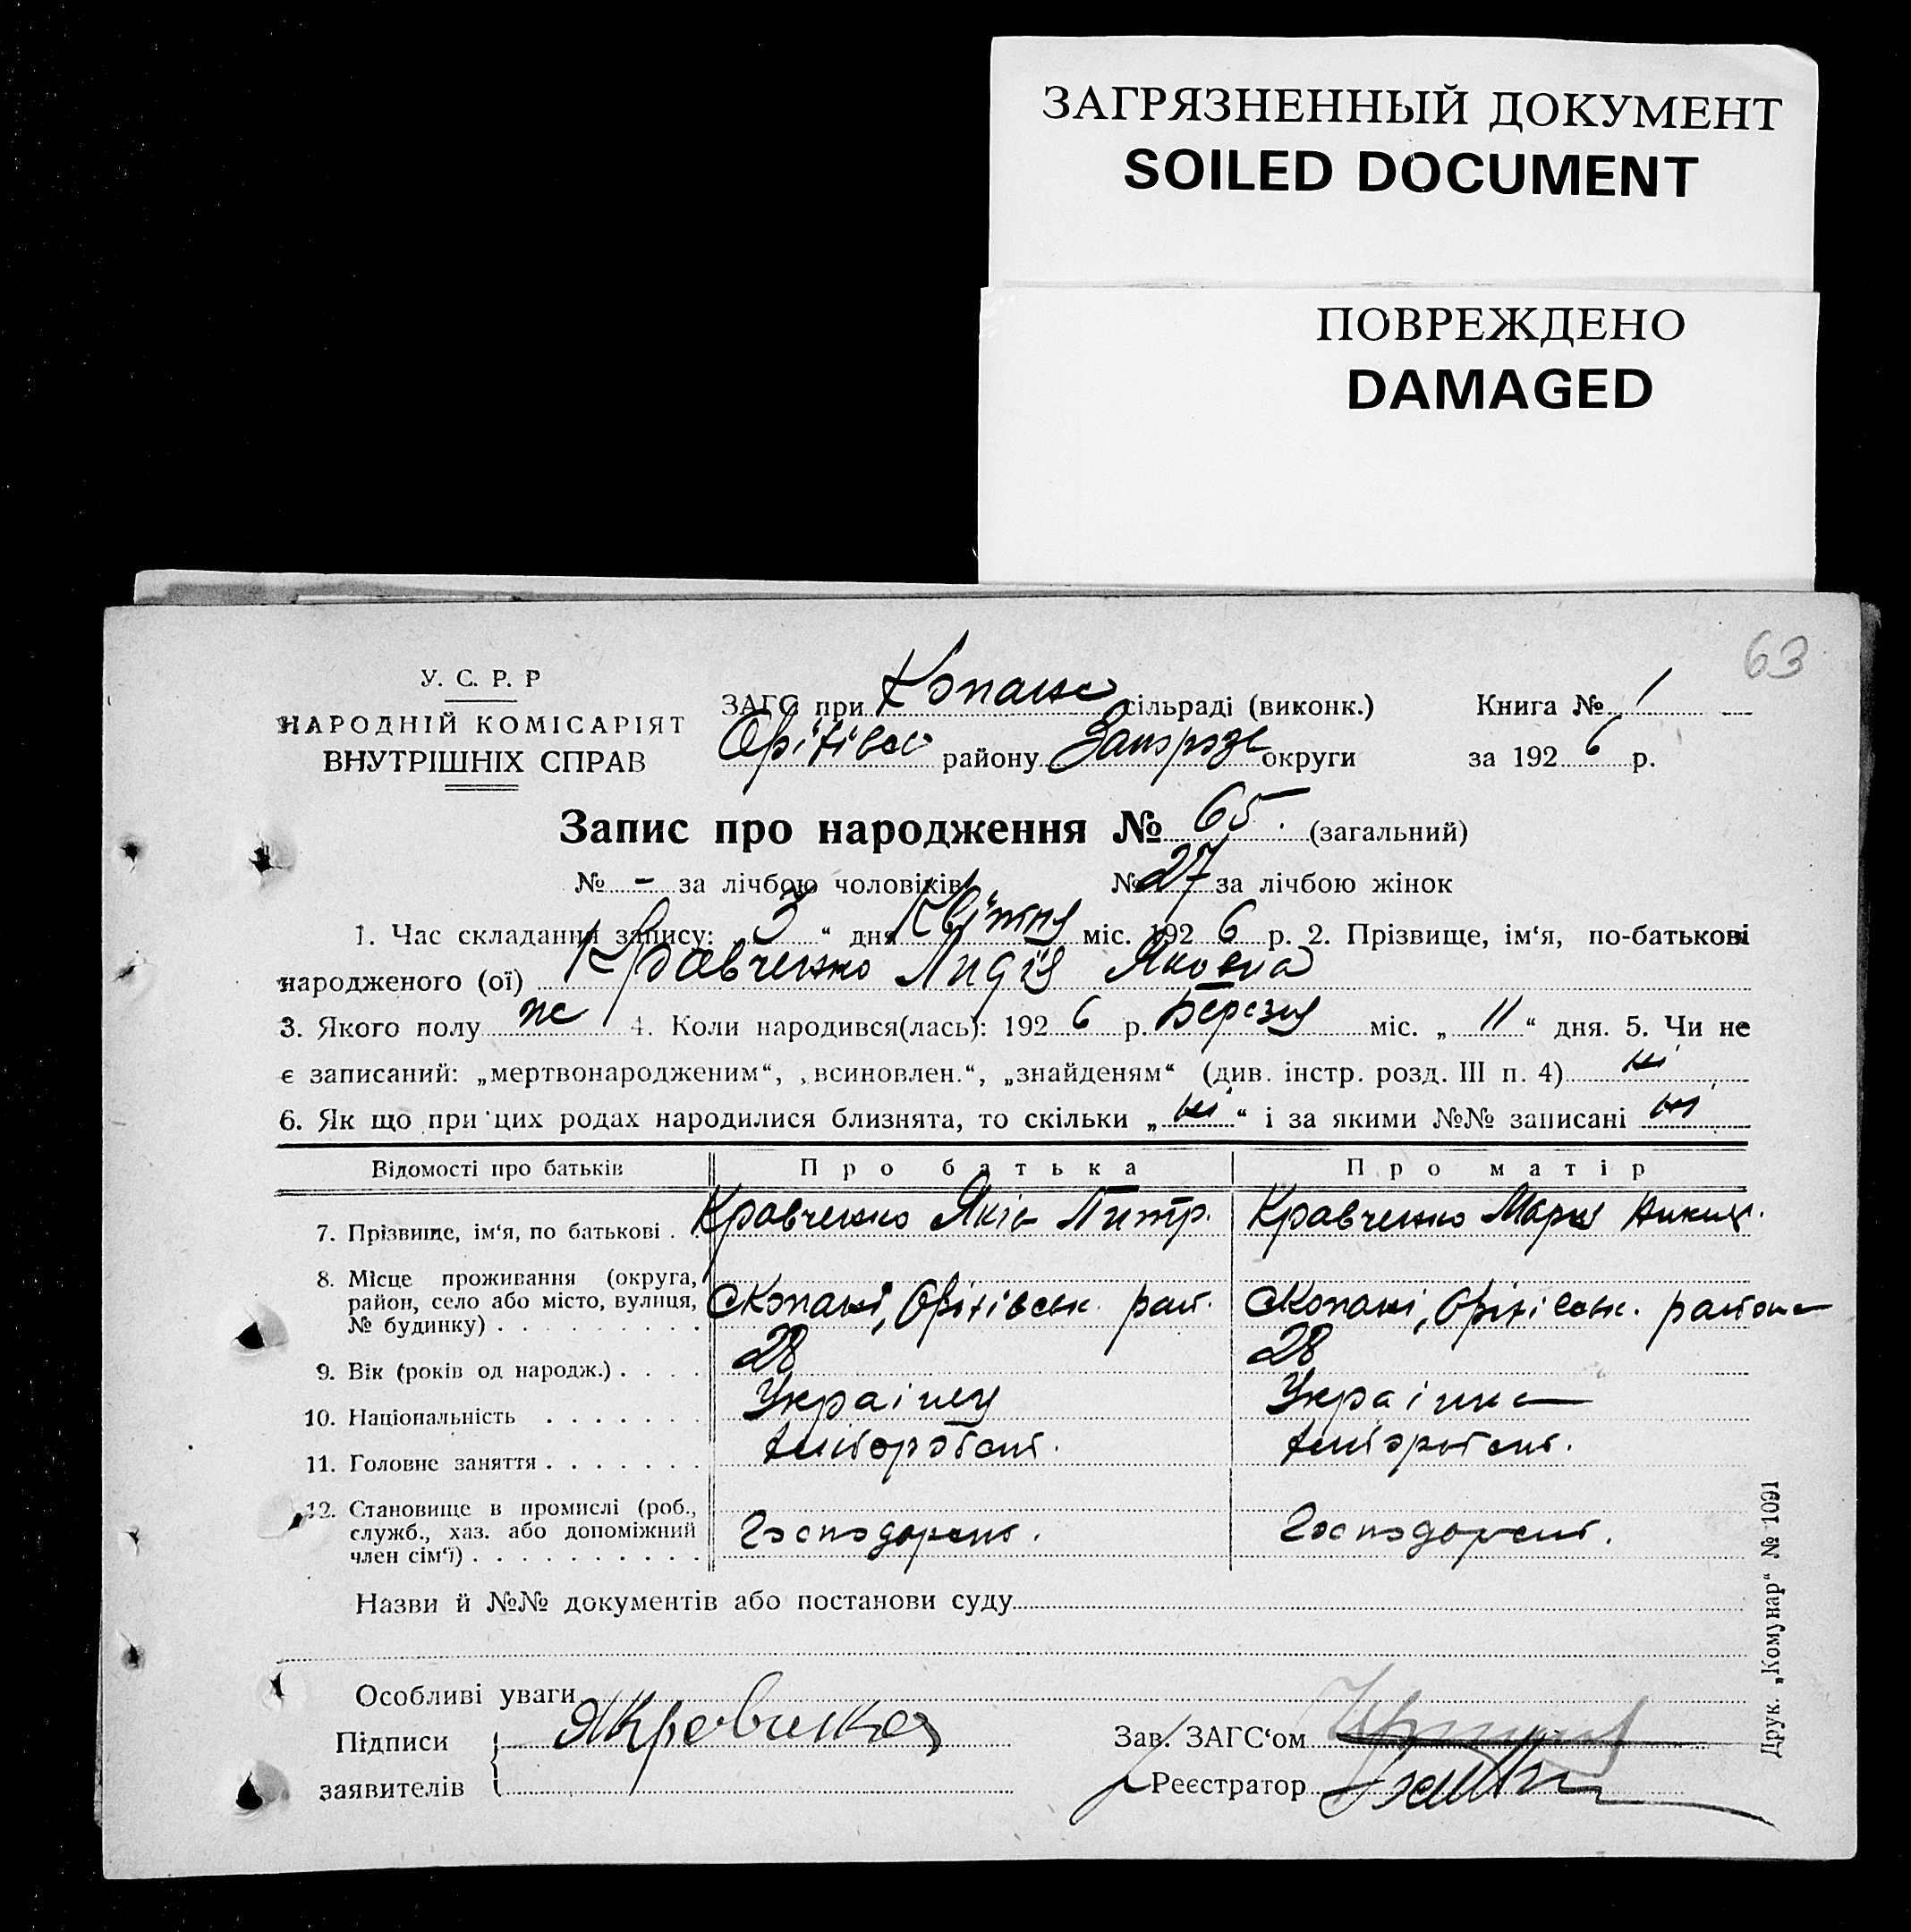 ЗАГРЯЗНЕННЫЙ ДОКУМЕНТ
SOILED DOCUMENT
ПОВРЕЖДЕНО
DAMAGED
63
У. С. Р. Р
НАРОДНІЙ КОМІСАРІЯТ
ВНУТРІШНІХ СПРАВ
ЗАГС при Копане сільраді (виконк.) Книга № 1
Оріхівсь району Запоріз округи за 1926 р.
Запис про народження № 65. (загальний)
№ - за лічбою чоловіків № 27 за лічбою жінок
1. Час складання запису: 3 “ дня Квітня міс. 1926 р. 2. Прізвище, ім‘я, по-батькові
народженого (ої) Кравченко Лидія Яковна
3. Якого полу же 4. Коли народився(лась): 1926 р. Березня міс. „ 11 “ дня. 5. Чи не
є записаний: „мертвонародженим“, „всиновлен.“, „знайденям“ (див. інстр. розд. III п. 4) ні
6. Як що при цих родах народилися близнята, то скільки „ ні “ і за якими №№ записані ні
Відомості про батьків Про батька Про матір
7. Прізвище, ім‘я, по батькові . Кравченко Яків Питр. Кравченко Мария
8. Місце проживання (округа, район, село або місто, вулиця, № будинку) . . . . . . . . . сКопані, Оріхівськ. рай. сКопані, Оріхівськ. района
9. Вік (років од народж.) . . . . 28 28
10. Національність . . . . . . . Украінец Украінка
11. Головне заняття . . . . . . . хлібороб
12. Становище в промислі (роб., служб., хаз. або допоміжний член сім‘ї) . . . . . . . . . .
Назви й №№ документів або постанови суду
Особливі уваги
Підписи
заявителів
Зав. ЗАГС‘ом
Реєстратор
Друк. „Комунар“ № 1091